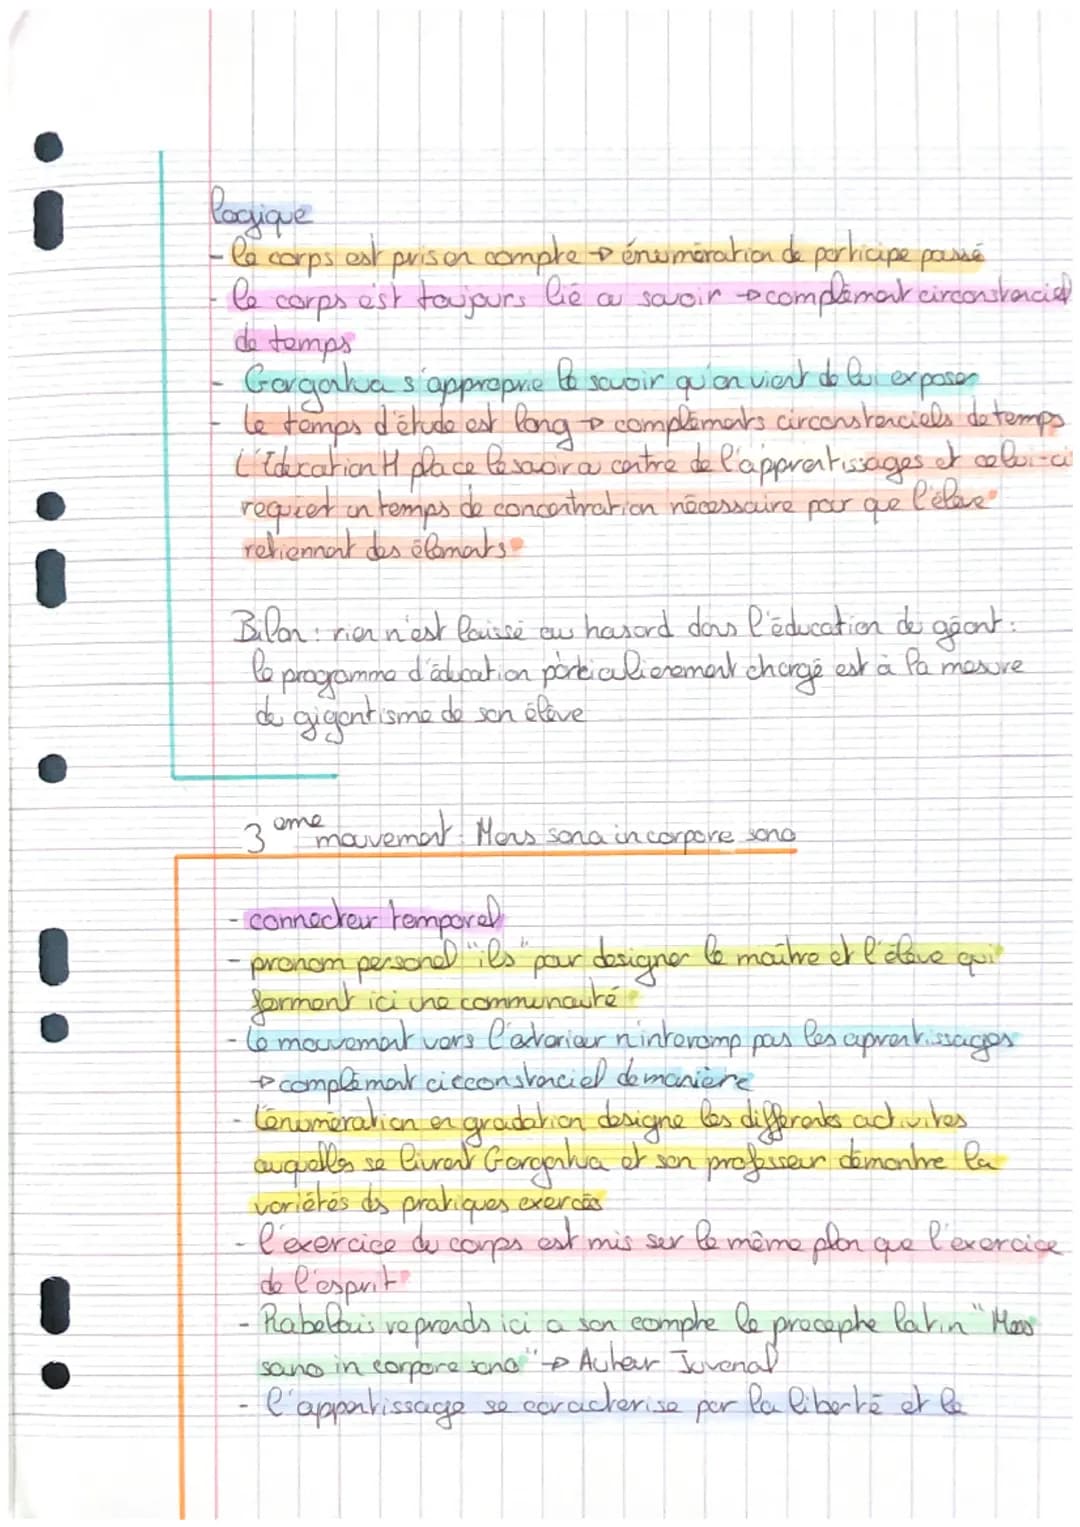 logique
- le corps est pris en compte → énumération de participe passé
- le corps est toujours lié au savoir → complément circonstenciel
de temps
- Gargantua s'approprie le savoir qu'on vient de lui exposer
- Le temps d'étude est long → compléments circonstenciels de temps
L'Education H place le savoir a centre de l'apprentissages et celui-ci
requiet un temps de concentration nécessaire pour que l'élève
retiennent des éléments
Bilan : rien n'est laissé au hasard dans l'éducation de géant :
le programme d'éducation particulièrement chargé est à la mesure
de gigantisme de son élève
3 eme mouvement : Mens sana in corpore sano
- connecteur temporel
- pronom personel "ils" pour designer le maître et l'élève qui
forment ici une communauté
- Le mouvement vers l'exterieur n'interromp pas les aprentissages
→ complément circonstenciel de manière
- L'énumération en gradation designe les differents activites
auquelles se livrent Gargantua et son professeur démontre la
variétés ds pratiques exercés
- l'exercice du corps est mis sur le même plan que l'exercice
de l'esprit
- Rabelais reprends ici a son compte le precepte latin "Mens
sano in corpore sano" → Auteur Juvenal
- l'apprentissage se caracterise par la liberté et le